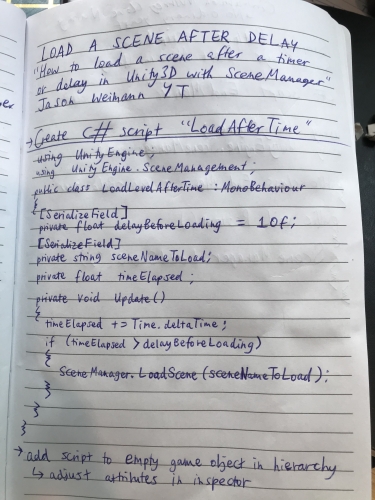 LOAD A SCENE AFTER DELAY
"How to load a scene after a timer
or delay in Unity3D with SceneManager"
Jason Weimann YT
→ Create C# script "LoadAfterTime"
using UnityEngine;
using UnityEngine.SceneManagement;
public class LoadLevelAfterTime : MonoBehaviour
{
[SerializeField]
private float delayBeforeLoading = 10f;
[SerializeField]
private string sceneNameToLoad;
private float timeElapsed;
private void Update()
{
timeElapsed += Time.deltaTime;
if (timeElapsed > delayBeforeLoading)
{
{
SceneManager.LoadScene(sceneNameToLoad);
}
}
}
}
→ add script to empty game object in hierarchy
↳ adjust attributes in inspector